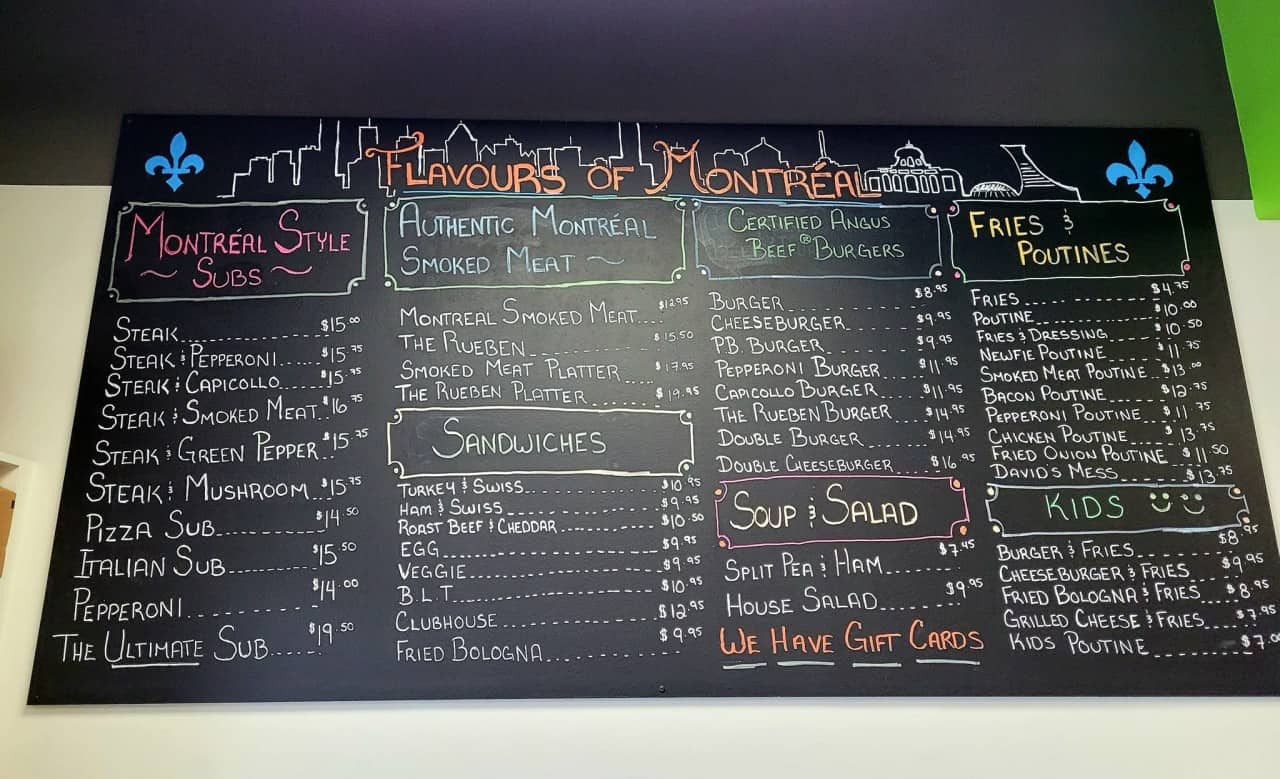 Flavours of Montréal
Montréal Style
~ Subs ~
Steak $15.00
Steak & Pepperoni $15.75
Steak & Capicollo $15.75
Steak & Smoked Meat $16.75
Steak & Green Pepper $15.75
Steak & Mushroom $15.75
Pizza Sub $14.50
Italian Sub $15.50
Pepperoni $14.00
The Ultimate Sub $19.50
Authentic Montréal
Smoked Meat ~
Montreal Smoked Meat $12.95
The Rueben $15.50
Smoked Meat Platter $17.95
The Rueben Platter $19.95
Sandwiches
Turkey & Swiss $10.95
Ham & Swiss $9.95
Roast Beef & Cheddar $10.50
Egg $9.95
Veggie $9.95
B.L.T $10.95
Clubhouse $12.95
Fried Bologna $9.95
Certified Angus
Beef® Burgers
Burger $8.95
Cheeseburger $9.95
P.B. Burger $9.95
Pepperoni Burger $11.95
Capicollo Burger $11.95
The Rueben Burger $14.95
Double Burger $14.95
Double Cheeseburger $16.95
Soup & Salad
Split Pea & Ham $7.45
House Salad $9.95
We Have Gift Cards
Fries &
Poutines
Fries $4.75
Poutine $10.00
Fries & Dressing $10.50
Newfie Poutine $11.75
Smoked Meat Poutine $13.00
Bacon Poutine $12.75
Pepperoni Poutine $11.75
Chicken Poutine $13.75
Fried Onion Poutine $11.50
David's Mess $13.75
Kids
Burger & Fries $8.95
Cheeseburger & Fries $9.95
Fried Bologna & Fries $8.95
Grilled Cheese & Fries $7.95
Kids Poutine